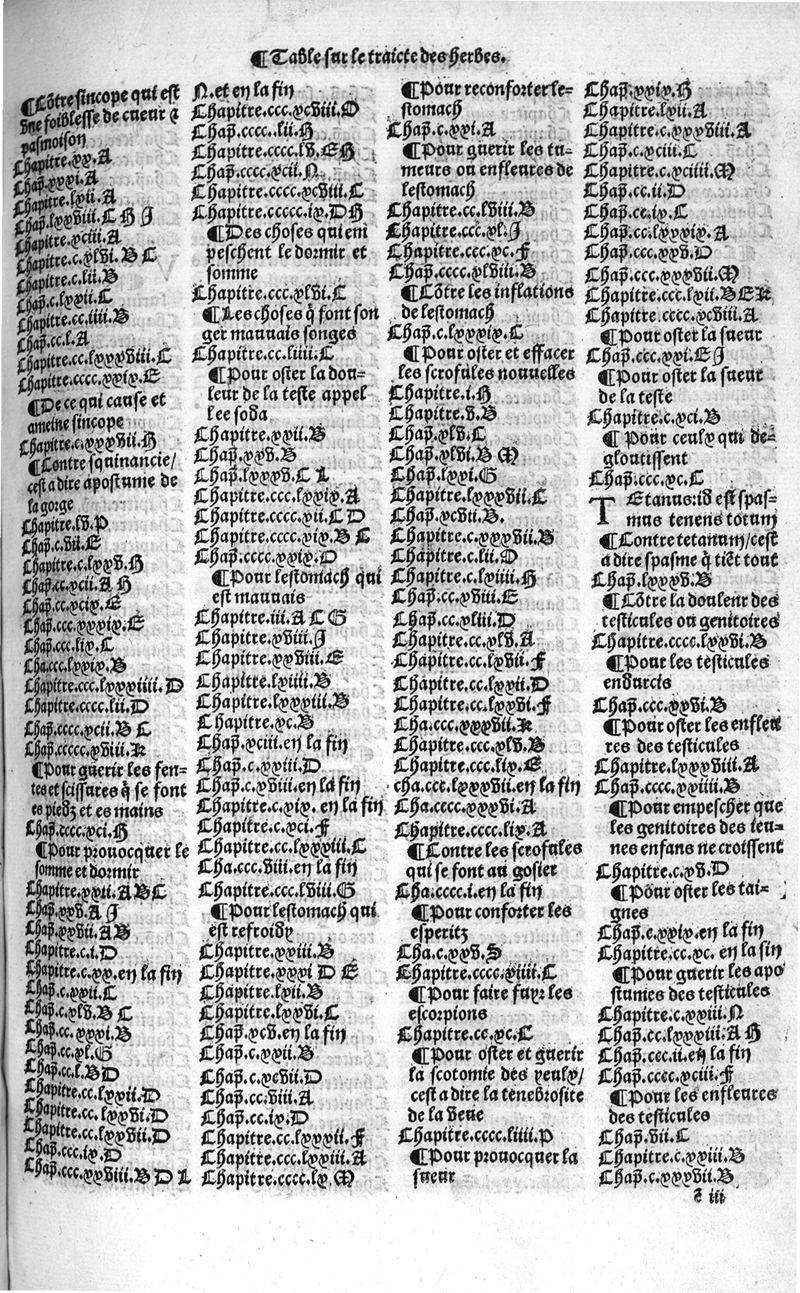 ¶Table sur le traicte des herbes.
¶Cõtre sincope qui est
vne foiblesse de cueur ⁊
pasmoison
Chapitre.xx.A
Chap̃.xxxi.A
Chapitre.lvii.A
Chap̃.lxxviii.C H J
Chapitre.xciii.A
Chapitre.c.xlvi.B C
Chapitre.c.lii.B
Chap̃.c.lxxii.C
Chapitre.cc.iiii.B
Chap̃.cc.l.A
Chapitre.cc.lxxxviii.C
Chapitre.cccc.xxix.E
¶De ce qui cause et
ameine sincope
Chapitre.c.xxxvii.H
¶Contre squinancie/
cest a dire apostume de
la gorge
Chapitre.lv.P
Chap̃.c.vii.E
Chapitre.c.lxxv.H
Chap̃.cc.xcii.A H
Chap̃.cc.xcix.E
Chap̃.ccc.xxxix.E
Chap̃.ccc.lix.C
Cha.ccc.lxxix.B
Chapitre.ccc.lxxxiiii.D
Chapitre.cccc.lii.D
Chap̃.cccc.xcii.B C
Chap̃.ccccc.xviii.K
¶Pour guerir les fen-
tes et scissures q̃ se font
es piedz et es mains
Chap̃.cccc.xci.H
¶Pour prouocquer le
somme et dormir
Chapitre.xxii.A B C
Chap̃.xxv.A J
Chap̃.xxvii.A B
Chapitre.c.i.D
Chapitre.c.xx.en la fin
Chap̃.c.xxii.C
Chap̃.c.xlv.B C
Chap̃.cc.xxxi.B
Chap̃.cc.xl.G
Chap̃.cc.l.B D
Chapitre.cc.lxxii.D
Chapitre.cc.lxxvi.D
Chapitre.cc.lxxvii.D
Chap̃.ccc.ix.D
Chap̃.ccc.xxviii.B D L
N.et en la fin
Chapitre.ccc.xcviii.O
Chap̃.cccc.lii.H
Chapitre.cccc.lv.E H
Chap̃.cccc.xcii.N
Chap̃.cccc.xcviii.C
Chapitre.ccccc.ix.D H
¶Des choses qui em
peschent le dormir et
somme
Chapitre.ccc.xlvi.C
¶Les choses q̃ font son
ger mauuais songes
Chapitre.cc.liiii.C
¶Pour oster la dou-
leur de la teste appel
lee soda
Chapitre.xxii.B
Chap̃.xxv.B
Chap̃.lxxxv.C L
Chapitre.ccc.lxxix.A
Chapitre.cccc.xii.C D
Chapitre.cccc.xix.B C
Chap̃.cccc.xxix.D
¶Pour lestomach qui
est mauuais
Chapitre.iii.A C G
Chapitre.xviii.J
Chapitre.xxviii.E
Chapitre.lxiiii.B
Chapitre.lxxxiii.B
Chapitre.xc.B
Chap̃.xciii.en la fin
Chap̃.c.xxiii.D
Chap̃.c.xviii.en la fin
Chapitre.c.xix. en la fin
Chapitre.c.xci.F
Chapitre.cc.lxxxiii.C
Cha.ccc.viii.en la fin
Chap̃.ccc.lviii.G
¶Pour lestomach qui
est refroidy
Chapitre.xxiii.B
Chapitre.xxxi D E
Chapitre.lxii.B
Chapitre.lxxvi.C
Chap̃.xcv.en la fin
Chap̃.c.xxii.B
Chap̃.c.xcvii.D
Chap̃.cc.viii.A
Chap̃.cc.ix.D
Chapitre.cc.lxxxii.F
Chapitre.ccc.lxxiii.A
Chapitre.cccc.lx.M
¶Pour reconforter le-
stomach
Chap̃.c.xxi.A
¶Pour guerir les tu-
meurs ou enfleures de
lestomach
Chapitre.cc.lviii.B
Chapitre.ccc.xl.J
Chapitre.ccc.xc.F
Chap̃.cccc.xlviii.B
¶Cõtre les inflations
de lestomach
Chap̃.c.lxxxix.C
¶Pour oster et effacer
les scrofules nouuelles
Chapitre.i.H
Chapitre.v.B
Chap̃.xlv.C
Chap̃.xlvi.B M
Chap̃.lxxi.G
Chapitre.lxxxvii.C
Chap̃.xcvii.B.
Chapitre.c.xxxvii.B
Chapitre.c.lii.O
Chapitre.c.lxiiii.H
Chap̃.cc.xviii.E
Chap̃.cc.xliii.D
Chapitre.cc.xlv.A
Chapitre.cc.lxvii.F
Chapitre.cc.lxxii.D
Chapitre.cc.lxxvi.F
Cha.ccc.xxxvii.K
Chapitre.ccc.xlv.B
Chapitre.ccc.lix.E
cha.ccc.lxxxvii.en la fin
Cha.cccc.xxxvi.A
Chapitre.cccc.lix.A
¶Contre les scrofules
qui se font au gosier
Cha.cccc.i.en la fin
¶Pour conforter les
esperitz
Cha.c.xxv.S
Chapitre.cccc.xiiii.C
¶Pour faire fuyr les
escorpions
Chapitre.cc.xc.C
¶Pour oster et guerir
la scotomie des yeulx/
cest a dire la tenebrosite
de la veue
Chapitre.cccc.liiii.P
¶Pour prouocquer la
sueur
Chap̃.xxix.H
Chapitre.lvii.A
Chapitre.c.xxxviii.A
Chap̃.c.xciii.C
Chapitre.c.xciiii.M
Chap̃.cc.ii.D
Chap̃.cc.ix.C
Chap̃.cc.lxxxix.A
Chap̃.ccc.xxv.D
Chap̃.ccc.xxxvii.M
Chapitre.ccc.lxii.B E K
Chapitre.cccc.xcviii.A
¶Pour oster la sueur
Chap̃.ccc.xxi.E J
¶Pour oster la sueur
de la teste
Chapitre.c.xci.B
¶ Pour ceulx qui de-
gloutissent
Chap̃.ccc.xc.C
TEtanus:id est spas-
mus tenens totum
¶Contre tetanum/cest
a dire spasme q̃ tiẽt tout
Chap̃.lxxxv.B
¶Cõtre la douleur des
testicules ou genitoires
Chapitre.cccc.lxxvi.B
¶Pour les testicules
endurcis
Chap̃.ccc.xxvi.B
¶Pour oster les enfleu
res des testicules
Chapitre.lxxxviii.A
Chap̃.cccc.xxiiii.B
¶Pour empescher que
les genitoires des ieu-
nes enfans ne croissent
Chapitre.c.xv.D
¶Pour oster les tai-
gnes
Chap̃.c.xxix.en la fin
Chapitre.cc.xc. en la fin
¶Pour guerir les apo
stumes des testicules
Chapitre.c.xxiii.N
Chap̃.cc.lxxviii.A H
Chap̃.ccc.ii.en la fin
Chap̃.cccc.xciii.F
¶Pour les enfleures
des testicules
Chap̃.vii.C
Chapitre.c.xxiii.B
Chap̃.c.xxxvii.B
⁊ iii